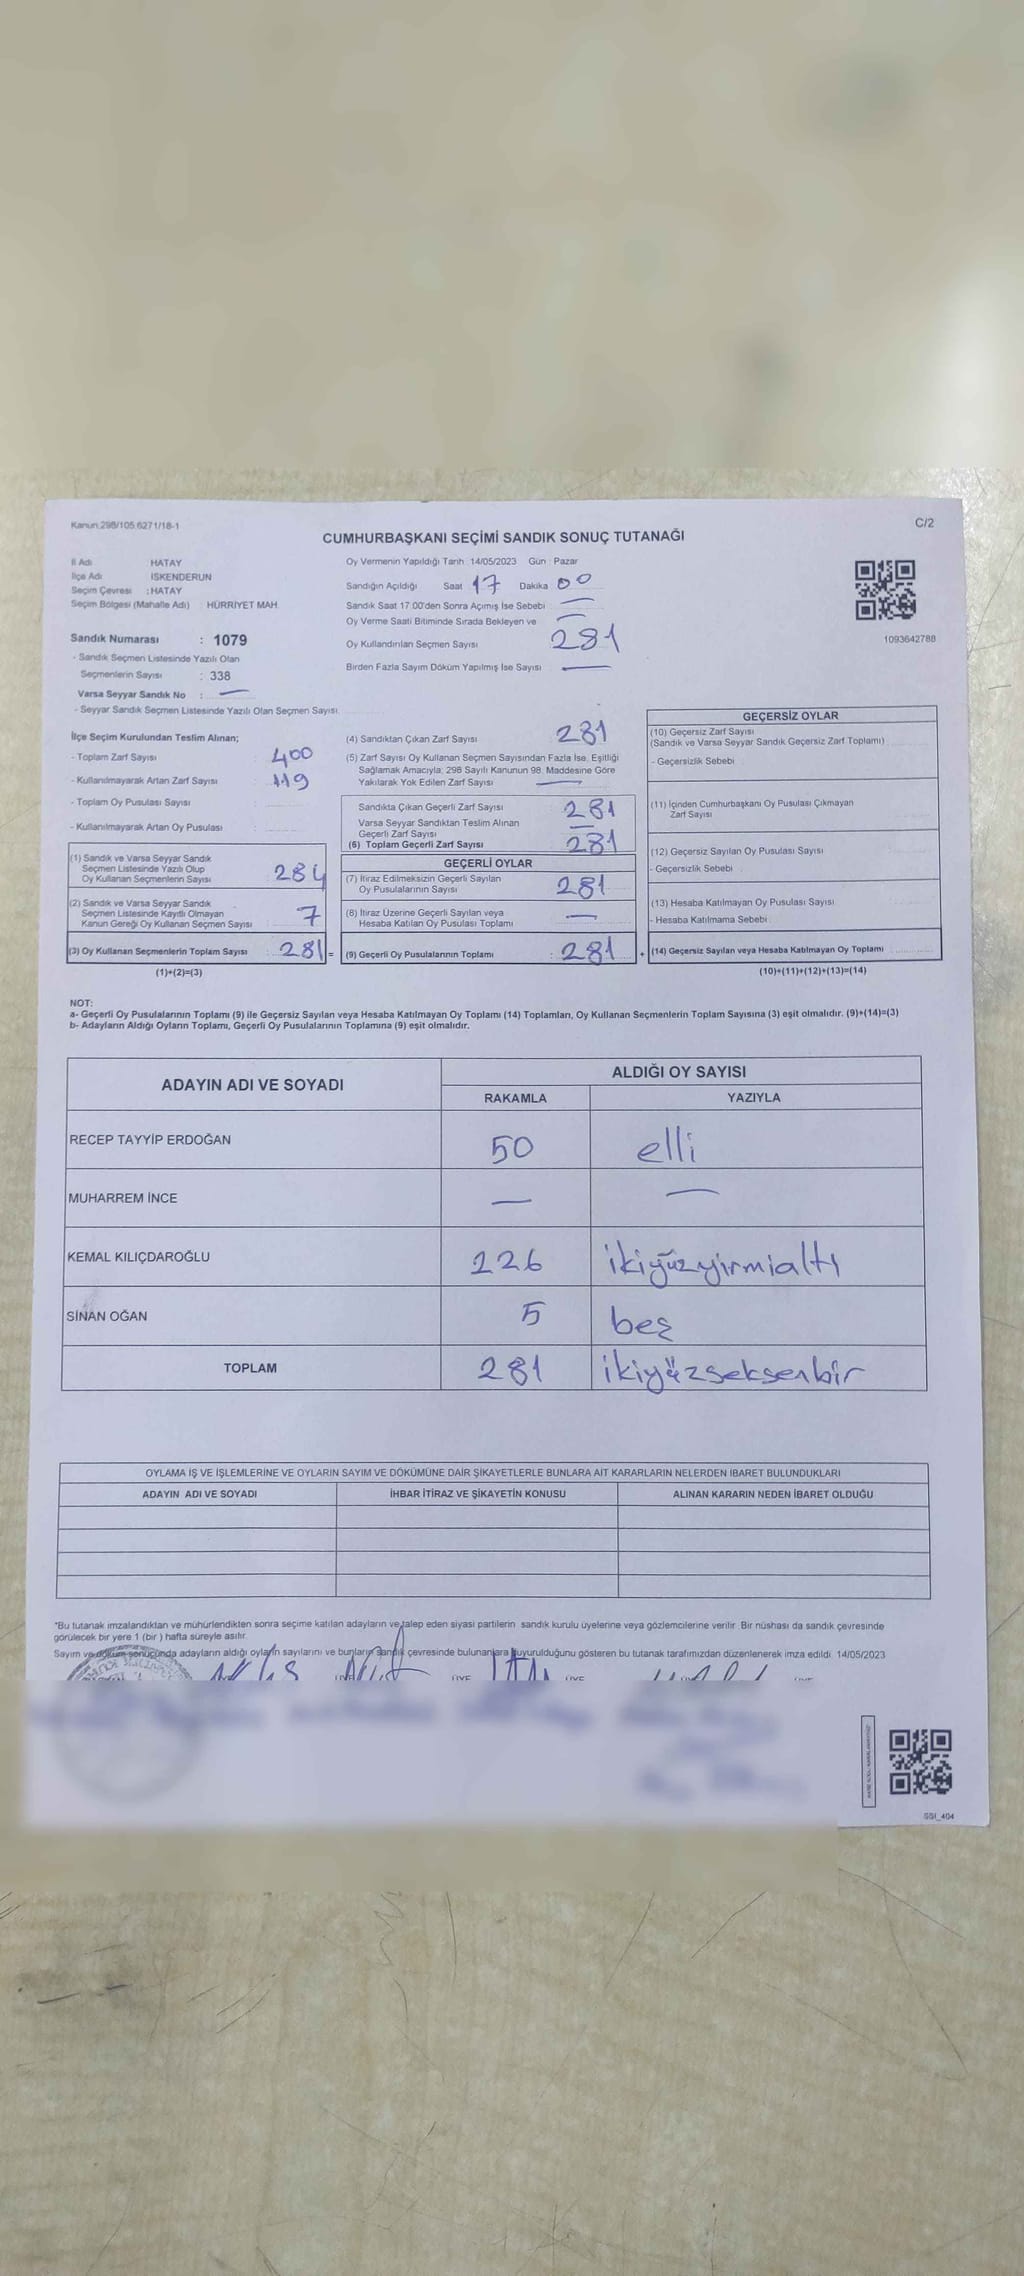 Kanun 298/105,6271/18-1
C/2
CUMHURBAŞKANI SEÇİMİ SANDIK SONUÇ TUTANAĞI
İl Adı HATAY
İlçe Adı İSKENDERUN
Seçim Çevresi : HATAY
Seçim Bölgesi (Mahalle Adı) : HÜRRİYET MAH.
Sandık Numarası : 1079
- Sandık Seçmen Listesinde Yazılı Olan
Seçmenlerin Sayısı : 338
Varsa Seyyar Sandık No : —
- Seyyar Sandık Seçmen Listesinde Yazılı Olan Seçmen Sayısı:
Oy Vermenin Yapıldığı Tarih : 14/05/2023 Gün : Pazar
Sandığın Açıldığı Saat 17 Dakika 00
Sandık Saat 17:00'den Sonra Açımış İse Sebebi —
Oy Verme Saati Bitiminde Sırada Bekleyen ve —
Oy Kullandırılan Seçmen Sayısı 281
Birden Fazla Sayım Döküm Yapılmış İse Sayısı —
1093642788
İlçe Seçim Kurulundan Teslim Alınan;
- Toplam Zarf Sayısı : 400
- Kullanılmayarak Artan Zarf Sayısı : 119
- Toplam Oy Pusulası Sayısı :
- Kullanılmayarak Artan Oy Pusulası :
(1) Sandık ve Varsa Seyyar Sandık
Seçmen Listesinde Yazılı Olup
Oy Kullanan Seçmenlerin Sayısı 284
(2) Sandık ve Varsa Seyyar Sandık
Seçmen Listesinde Kayıtlı Olmayan
Kanun Gereği Oy Kullanan Seçmen Sayısı 7
(3) Oy Kullanan Seçmenlerin Toplam Sayısı : 281 =
(1)+(2)=(3)
(4) Sandıktan Çıkan Zarf Sayısı 281
(5) Zarf Sayısı Oy Kullanan Seçmen Sayısından Fazla İse, Eşitliği
Sağlamak Amacıyla; 298 Sayılı Kanunun 98. Maddesine Göre
Yakılarak Yok Edilen Zarf Sayısı —
Sandıkta Çıkan Geçerli Zarf Sayısı 281
Varsa Seyyar Sandıktan Teslim Alınan
Geçerli Zarf Sayısı —
(6) Toplam Geçerli Zarf Sayısı 281
GEÇERLİ OYLAR
(7) İtiraz Edilmeksizin Geçerli Sayılan
Oy Pusulalarının Sayısı 281
(8) İtiraz Üzerine Geçerli Sayılan veya
Hesaba Katılan Oy Pusulası Toplamı —
(9) Geçerli Oy Pusulalarının Toplamı : 281 +
GEÇERSİZ OYLAR
(10) Geçersiz Zarf Sayısı
(Sandık ve Varsa Seyyar Sandık Geçersiz Zarf Toplamı)
- Geçersizlik Sebebi
(11) İçinden Cumhurbaşkanı Oy Pusulası Çıkmayan
Zarf Sayısı
(12) Geçersiz Sayılan Oy Pusulası Sayısı
- Geçersizlik Sebebi
(13) Hesaba Katılmayan Oy Pusulası Sayısı
- Hesaba Katılmama Sebebi
(14) Geçersiz Sayılan veya Hesaba Katılmayan Oy Toplamı
(10)+(11)+(12)+(13)=(14)
NOT:
a- Geçerli Oy Pusulalarının Toplamı (9) ile Geçersiz Sayılan veya Hesaba Katılmayan Oy Toplamı (14) Toplamları, Oy Kullanan Seçmenlerin Toplam Sayısına (3) eşit olmalıdır. (9)+(14)=(3)
b- Adayların Aldığı Oyların Toplamı, Geçerli Oy Pusulalarının Toplamına (9) eşit olmalıdır.
ADAYIN ADI VE SOYADI ALDIĞI OY SAYISI
RAKAMLA YAZIYLA
RECEP TAYYİP ERDOĞAN 50 elli
MUHARREM İNCE — —
KEMAL KILIÇDAROĞLU 226 ikiyüzyirmialtı
SİNAN OĞAN 5 beş
TOPLAM 281 ikiyüzseksenbir
OYLAMA İŞ VE İŞLEMLERİNE VE OYLARIN SAYIM VE DÖKÜMÜNE DAİR ŞİKAYETLERLE BUNLARA AİT KARARLARIN NELERDEN İBARET BULUNDUKLARI
ADAYIN ADI VE SOYADI İHBAR İTİRAZ VE ŞİKAYETİN KONUSU ALINAN KARARIN NEDEN İBARET OLDUĞU
*Bu tutanak imzalandıktan ve mühürlendikten sonra seçime katılan adayların ve talep eden siyasi partilerin sandık kurulu üyelerine veya gözlemcilerine verilir. Bir nüshası da sandık çevresinde
görülecek bir yere 1 (bir) hafta süreyle asılır.
Sayım ve döküm sonucunda adayların aldığı oyların sayılarını ve bunların sandık çevresinde bulunanlara duyurulduğunu gösteren bu tutanak tarafımızdan düzenlenerek imza edildi. 14/05/2023